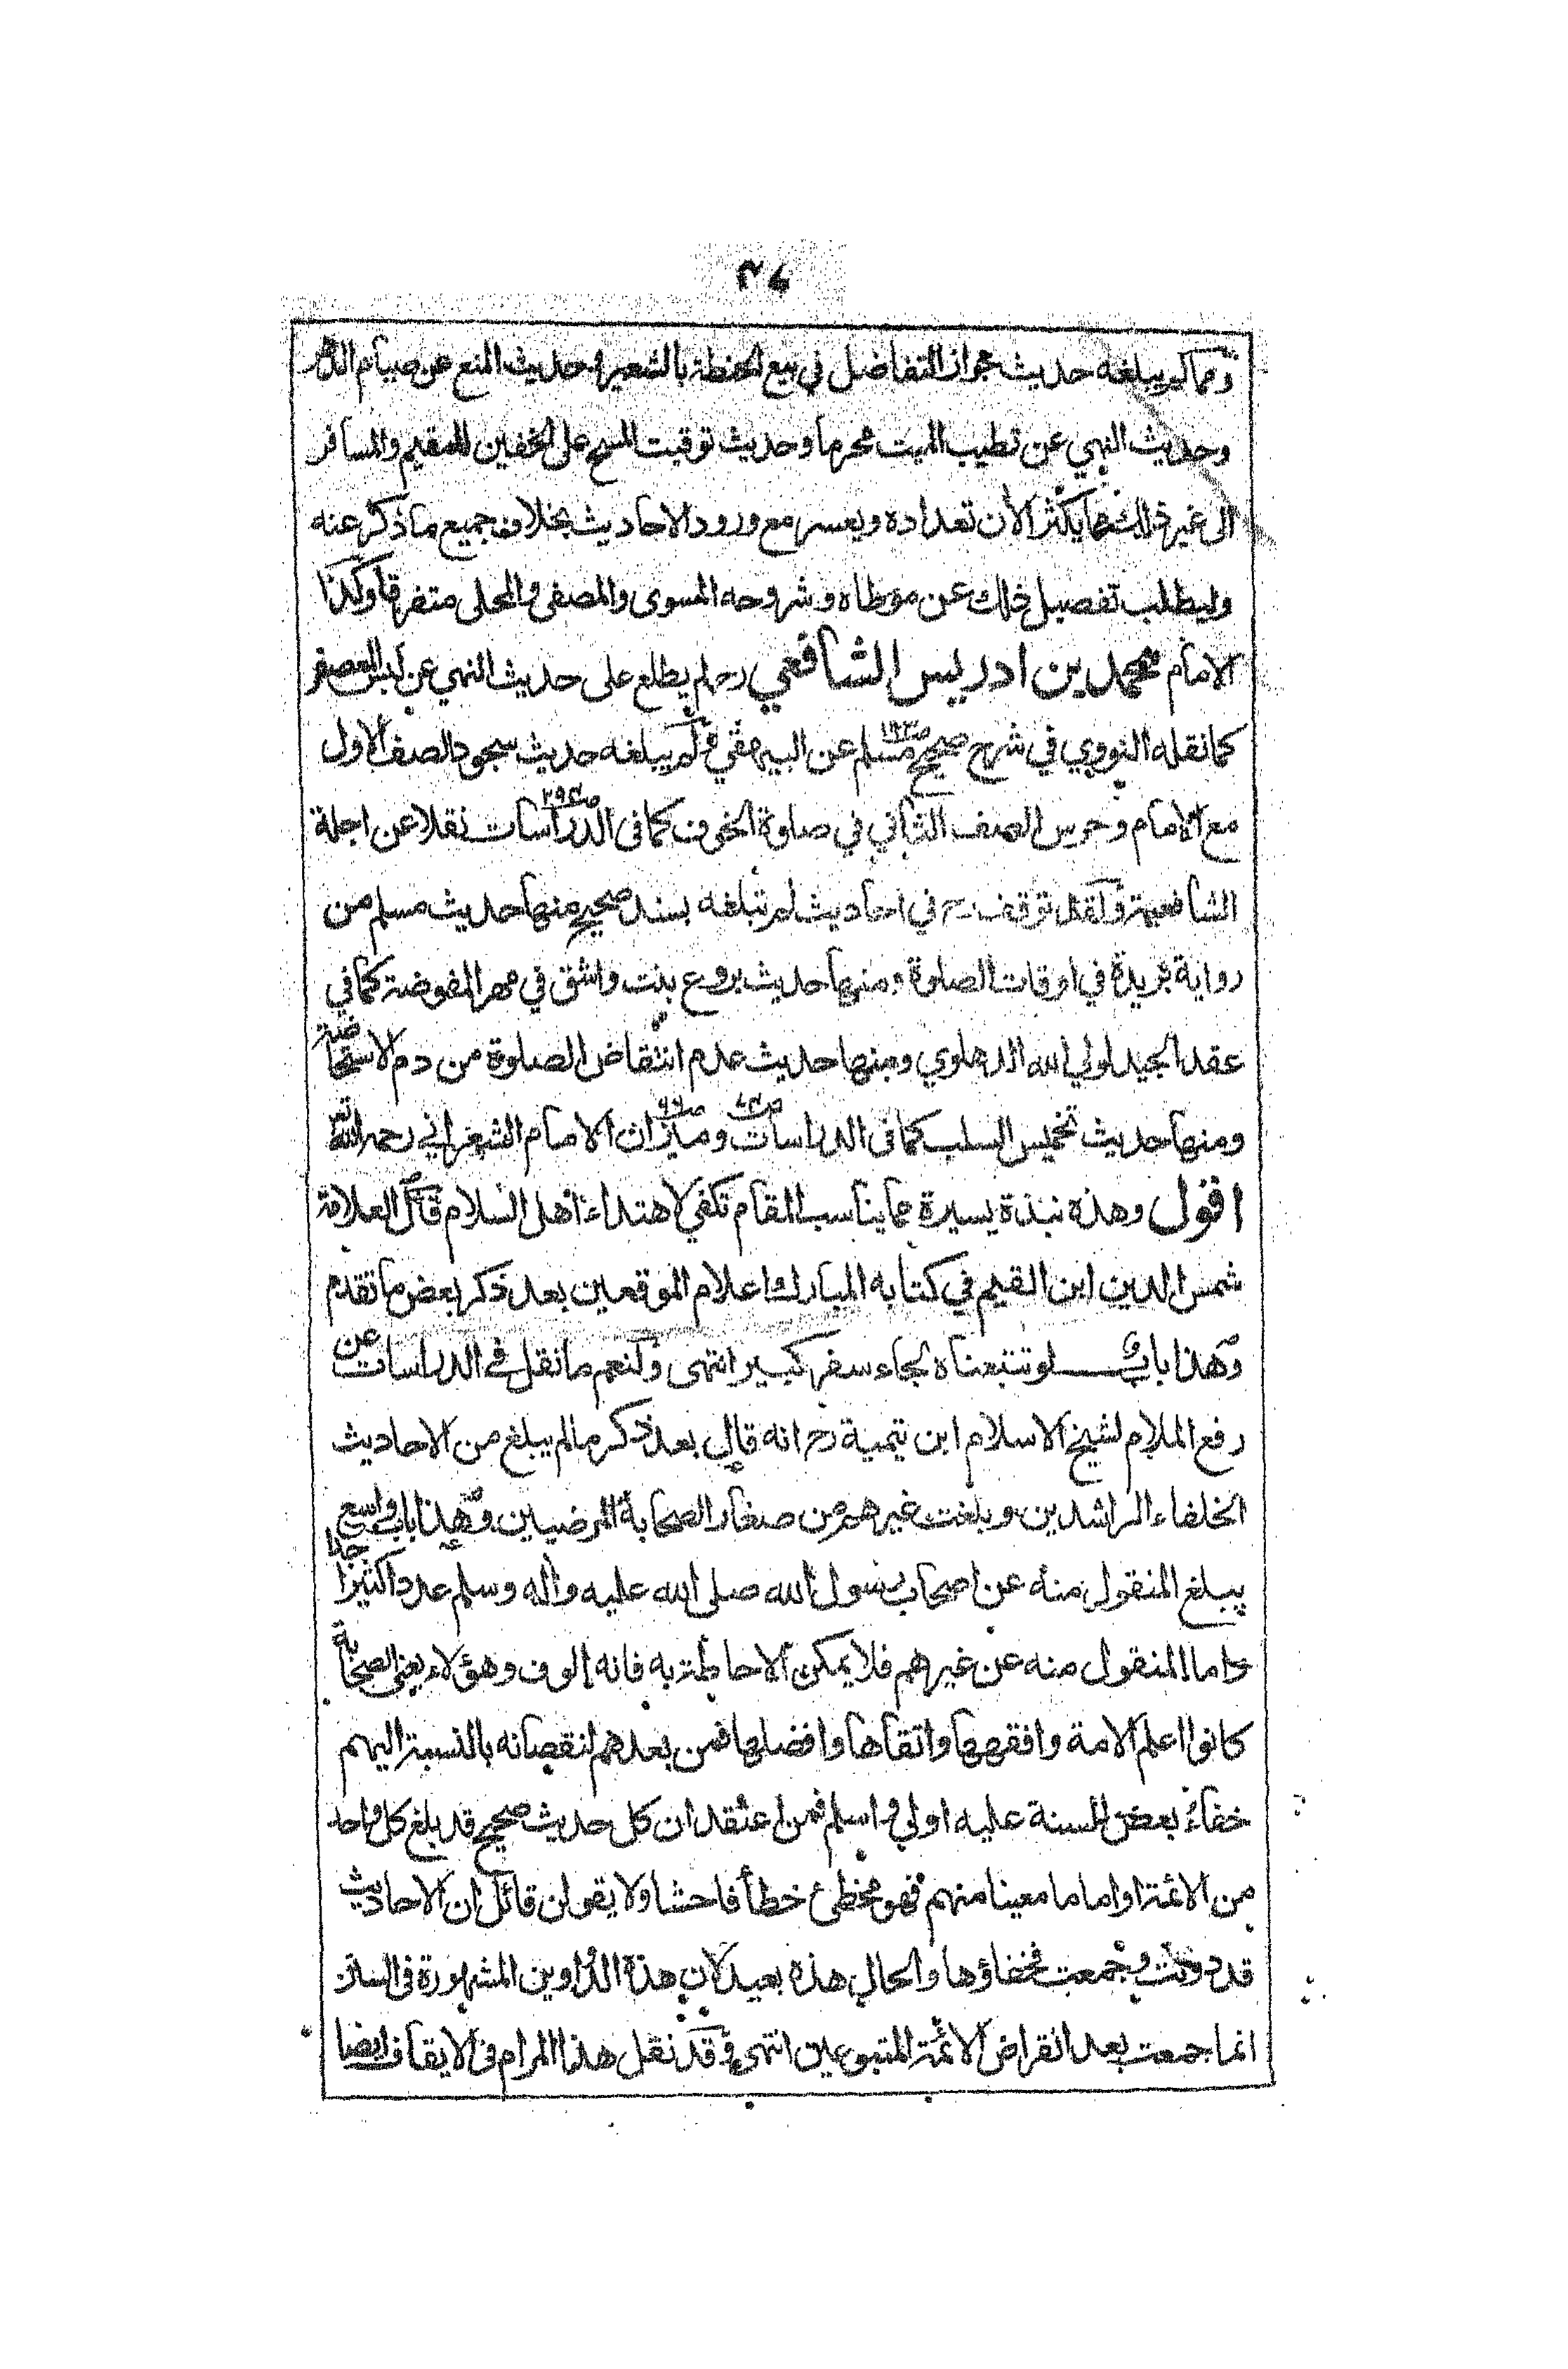 ٣٤
ومما لم يبلغه حديث جواز التفاضل في بيع الحنطة بالشعير وحديث المنع عن صيام الدهر
وحديث النهي عن تطيب الميت محرما وحديث توقيت المسح على الخفين للمقيم والمسافر
الى غير ذلك مما يكثر الأن تعداده ويعسر مع ورود الاحاديث بخلاف جميع ما ذكر عنه
وليطلب تفصيل ذلك عن موطاه وشروحه المسوى والمصفى والمحلى متفرقا وكذا
الامام محمد بن ادريس الشافعي رح لم يطلع على حديث النهي عن لبس المعصفر
كما نقله النووي في شرح صحيح مسلم ص١٩٣ عن البيهقي ولم يبلغه حديث سجود الصف الاول
مع الامام وحرس الصف الثاني في صلوة الخوف كما فى الدراسات ص٢٩٣ نقلا عن اجلة
الشافعية ولقد توقف رح في احاديث لم تبلغه بسند صحيح منها حديث مسلم من
رواية بريدة في اوقات الصلوة ومنها حديث بروع بنت واشق في مهر المفوضة كما في
عقد الجيد لولي الله الدهلوي ومنها حديث عدم انتقاض الصلوة من دم الاستحاضة
ومنها حديث تخميس السلب كما فى الدراسات وميزان الامام الشعراني رحمه الله
اقول وهذه نبذة يسيرة مما يناسب المقام تكفي لاهتداء اهل السلام قال العلامة
شمس الدين ابن القيم في كتابه المبارك اعلام الموقعين بعد ذكر بعض ما تقدم
وهذا باب لو تتبعناه لجاء سفر كبير انتهى ولنعم ما نقل في الدراسات عن
رفع الملام لشيخ الاسلام ابن تيمية رح انه قال بعد ذكر ما لم يبلغ من الاحاديث
الخلفاء الراشدين وبلغت غيرهم من صغار الصحابة المرضيين وهذا باب واسع جدا
يبلغ المنقول منه عن اصحاب رسول الله صلى الله عليه واله وسلم عددا كثيرا
واما المنقول منه عن غيرهم فلا يمكن الاحاطة به فانه الوف وهؤلاء يعني الصحابة
كانوا اعلم الامة وافقهها واتقاها وافضلها فمن بعدهم لنقصانه بالنسبة اليهم
خفاء بعض السنة عليه اولي واسلم فمن اعتقد ان كل حديث صحيح قد بلغ كل واحد
من الائمة او اماما معينا منهم فهو مخطئ خطأ فاحشا ولا يقولن قائل ان الاحاديث
قد دونت وجمعت فخفاؤها والحال هذه بعيد لان هذه الدواوين المشهورة فى السنن
انما جمعت بعد انقراض الائمة المتبوعين انتهى وقد نقل هذا المرام فى الايقاف ايضا